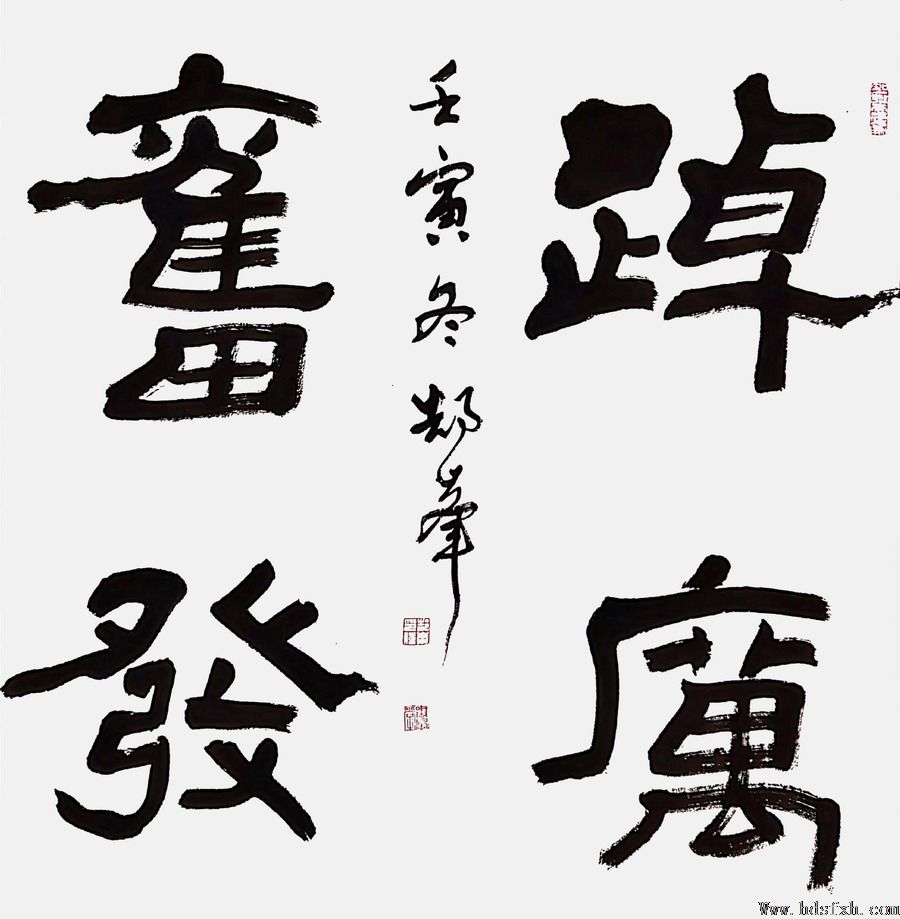 踔厲
奮發
壬寅冬 峯
Www.hdsfxh.com